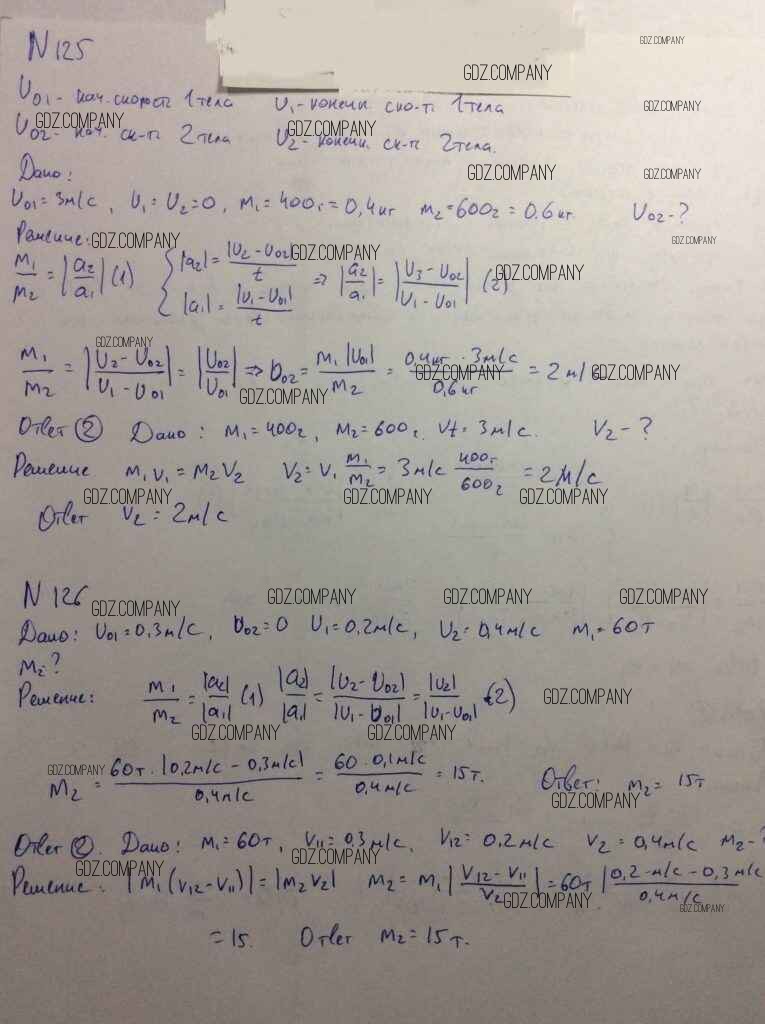 N 125
GDZ.COMPANY
GDZ.COMPANY
U01 - нач. скорость 1 тела U1 - конечн. ско-ть 1 тела GDZ.COMPANY
GDZ.COMPANY GDZ.COMPANY
U02 - нач. ск-ть 2 тела U2 - конечн. ск-ть 2 тела.
Дано: GDZ.COMPANY GDZ.COMPANY
U01 = 3м/с, U1 = U2 = 0, m1 = 400г = 0,4кг m2 = 600г = 0.6кг. U02 - ?
Решение: GDZ.COMPANY GDZ.COMPANY GDZ.COMPANY
m1/m2 = |a2/a1| (1) { |a2| = |U2 - U02|/t |a1| = |U1 - U01|/t => |a2/a1| = |U3 - U02/U1 - U01| (2) GDZ.COMPANY
GDZ.COMPANY
m1/m2 = |U2 - U02/U1 - U01| = |U02/U01| => U02 = m1 |U01|/m2 = 0,4кг · 3м/с/0,6кг = 2м/с GDZ.COMPANY GDZ.COMPANY
GDZ.COMPANY
Ответ (2) Дано: m1 = 400г, m2 = 600г. Vt = 3м/с. V2 - ?
Решение m1 V1 = m2 V2 V2 = V1 m1/m2 = 3м/с 400г/600г = 2м/с
GDZ.COMPANY GDZ.COMPANY GDZ.COMPANY
Ответ V2 = 2м/с
N 126 GDZ.COMPANY GDZ.COMPANY GDZ.COMPANY GDZ.COMPANY
Дано: U01 = 0,3м/с, U02 = 0 U1 = 0,2м/с, U2 = 0,4м/с m1 = 60т
m2?
Решение: m1/m2 = |a2|/|a1| (1) |a2|/|a1| = |U2 - U02|/|U1 - U01| = |U2|/|U1 - U01| (2) GDZ.COMPANY
GDZ.COMPANY GDZ.COMPANY
GDZ.COMPANY
m2 = 60т. |0,2м/с - 0,3м/с|/0,4м/с = 60 · 0,1м/с/0,4м/с = 15т. Ответ: m2 = 15т
GDZ.COMPANY
Ответ (2). Дано: m1 = 60т, V11 = 0,3м/с, V12 = 0,2м/с V2 = 0,4м/с m2 - ?
GDZ.COMPANY GDZ.COMPANY
Решение: |m1 (V12 - V11)| = |m2 V2| m2 = m1 |V12 - V11/V2| = 60т |0,2м/с - 0,3м/с/0,4м/с
GDZ.COMPANY GDZ.COMPANY
= 15. Ответ m2 = 15т.